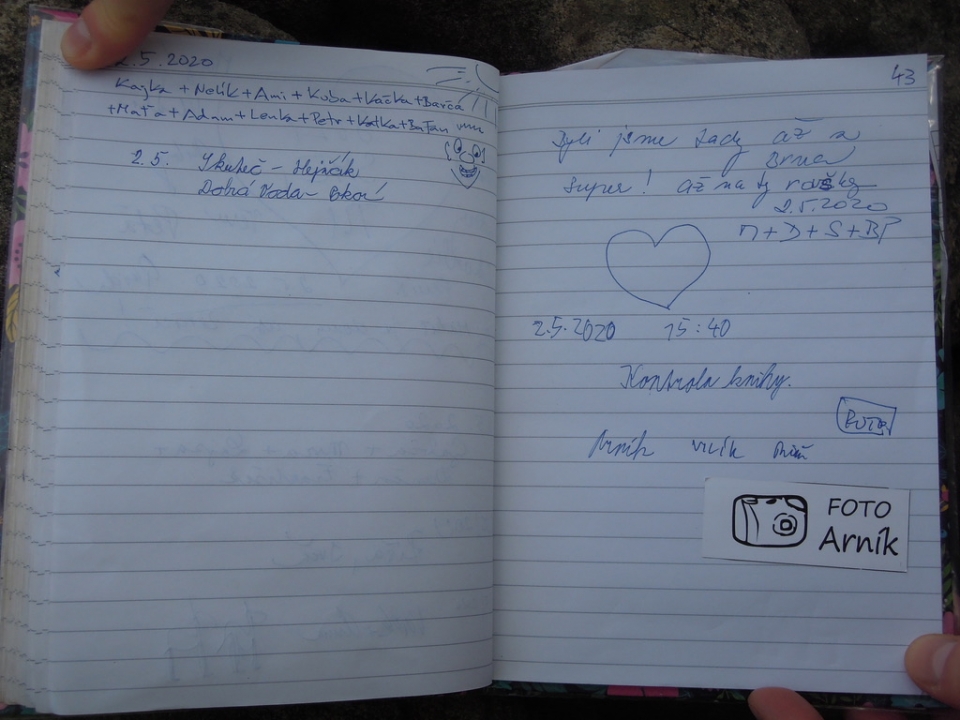 2.5.2020
Kajka + Nelík + Ami + Kuba + Kačka + Barča
+ Maťa + Adam + Lenka + Petr + Katka +
2.5. Skuteč - Hejřík
Voda -
43
Byli jsme tady až z
Brna
Super! až na ty
2.5.2020
M + D + S + BP
2.5.2020 15:40
Kontrola knihy.
Arník vlčík
FOTO
Arník